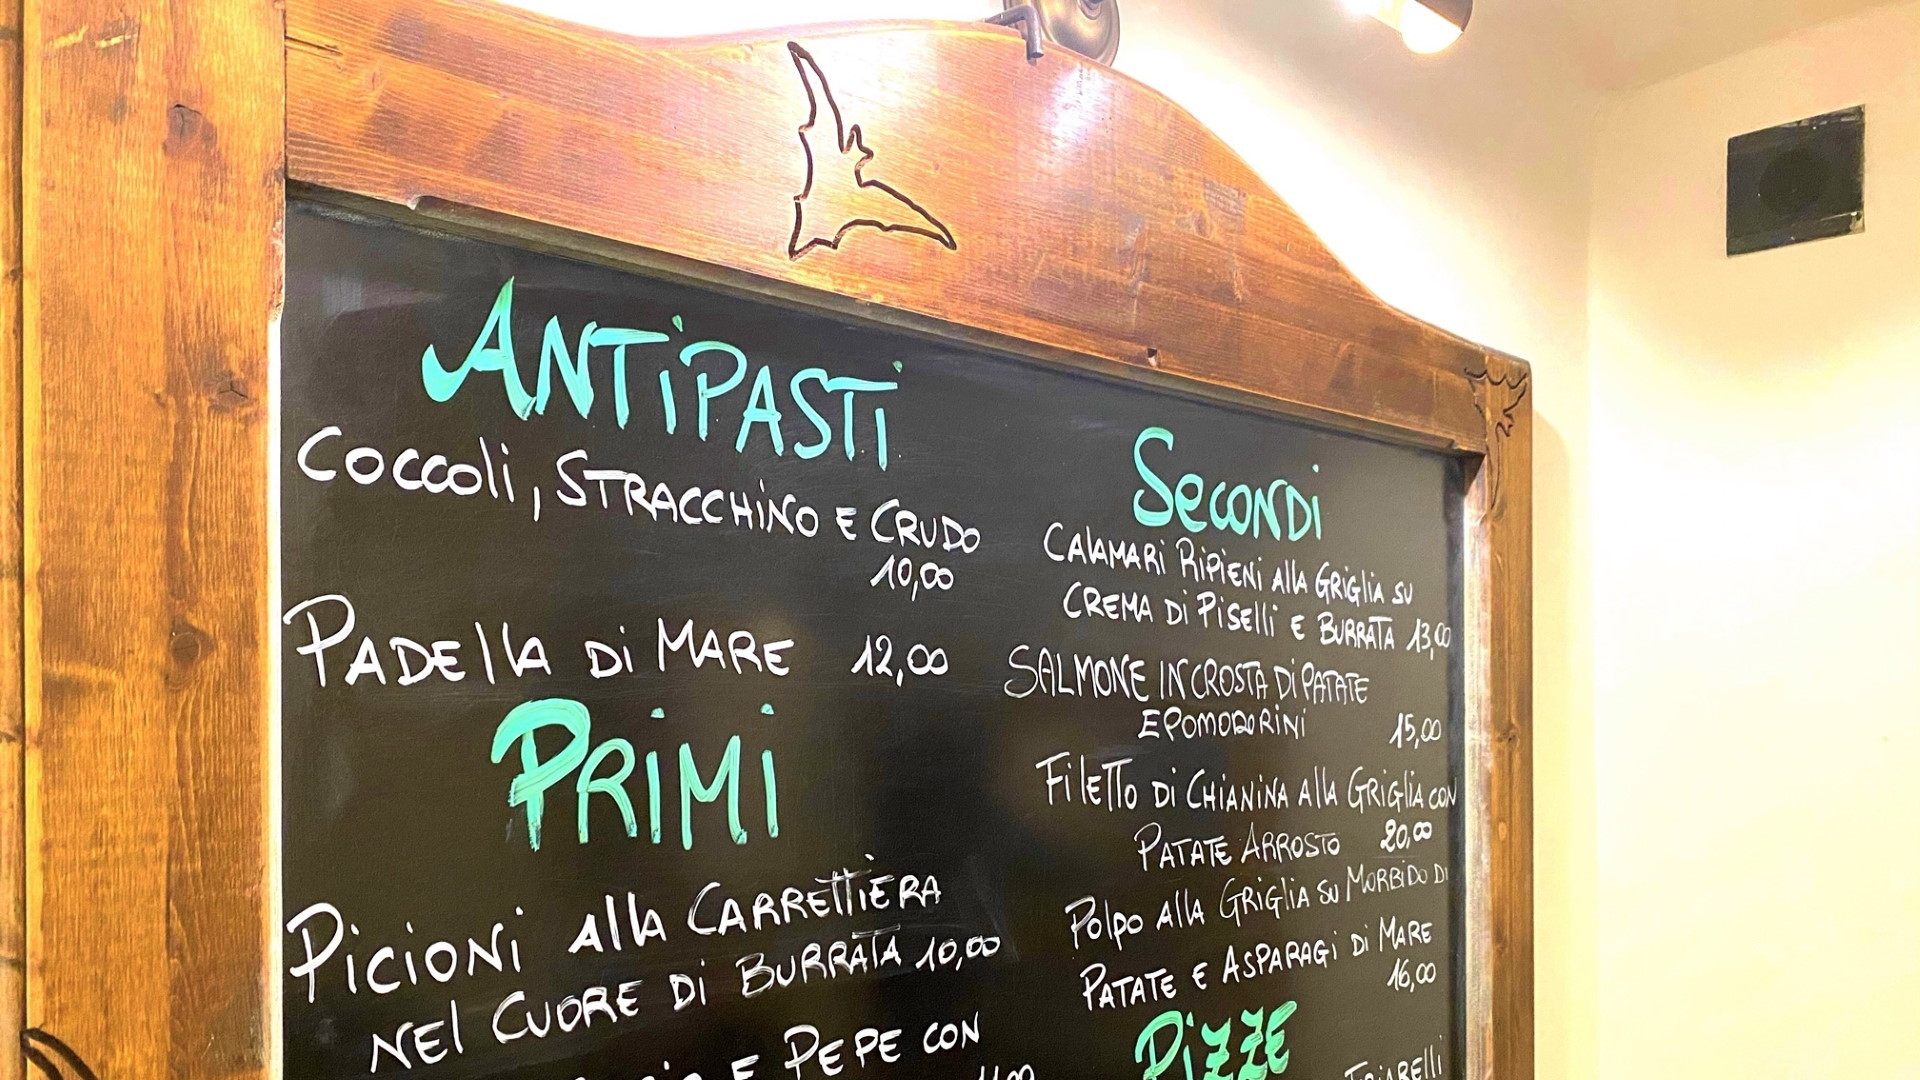 ANTiPASTi
Coccoli, STRACCHiNO E CRUDO
10,00
PADEllA Di MARE 12,00
PRiMi
PiCiONi Alla CARRETTiERA
NEl CUORE Di BURRATA 10,00
E PEPE CON
11,00
SECONDi
CAlAMARi RiPiENi Alla GRiGliA SU
CREMA Di PiSElli E BURRATA 13,00
SALMONE IN CROSTA Di PATATE
E POMODORiNi 15,00
FilETTO Di CHiANiNA Alla GRiGliA CON
PATATE ARROSTO 20,00
POlPO Alla GRiGliA SU MORBiDO Di
PATATE E ASPARAGi Di MARE
16,00
PiZZE